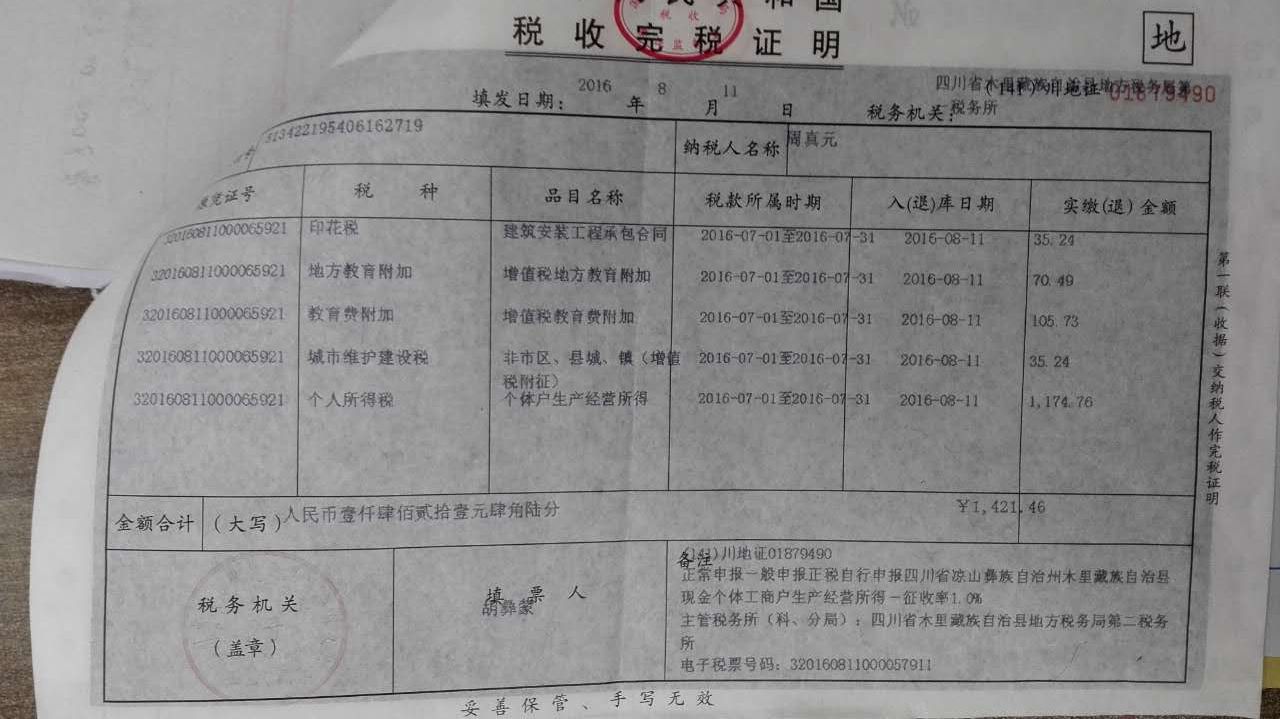 和国
税收完税证明
地
税收
监
填发日期： 2016 年 8 月 11 日 税务机关： 四川省木里藏族自治县地方税务局第一税务所
(141)川地证 01879490
513422195406162719 纳税人名称 周真元
凭证号 税 种 品目名称 税款所属时期 入(退)库日期 实缴(退)金额
320160811000065921 印花税 建筑安装工程承包合同 2016-07-01至2016-07-31 2016-08-11 35.24
320160811000065921 地方教育附加 增值税地方教育附加 2016-07-01至2016-07-31 2016-08-11 70.49
320160811000065921 教育费附加 增值税教育费附加 2016-07-01至2016-07-31 2016-08-11 105.73
320160811000065921 城市维护建设税 非市区、县城、镇（增值 2016-07-01至2016-07-31 2016-08-11 35.24
税附征）
320160811000065921 个人所得税 个体户生产经营所得 2016-07-01至2016-07-31 2016-08-11 1,174.76
金额合计 （大写）人民币壹仟肆佰贰拾壹元肆角陆分 ￥1,421.46
税务机关
（盖章）
填 票 人
胡彝蒙
备注
(141)川地证01879490
正常申报一般申报正税自行申报四川省凉山彝族自治州木里藏族自治县
现金个体工商户生产经营所得－征收率1.0%
主管税务所（科、分局）：四川省木里藏族自治县地方税务局第二税务
所
电子税票号码：320160811000057911
第一联（收据）交纳税人作完税证明
妥善保管、手写无效